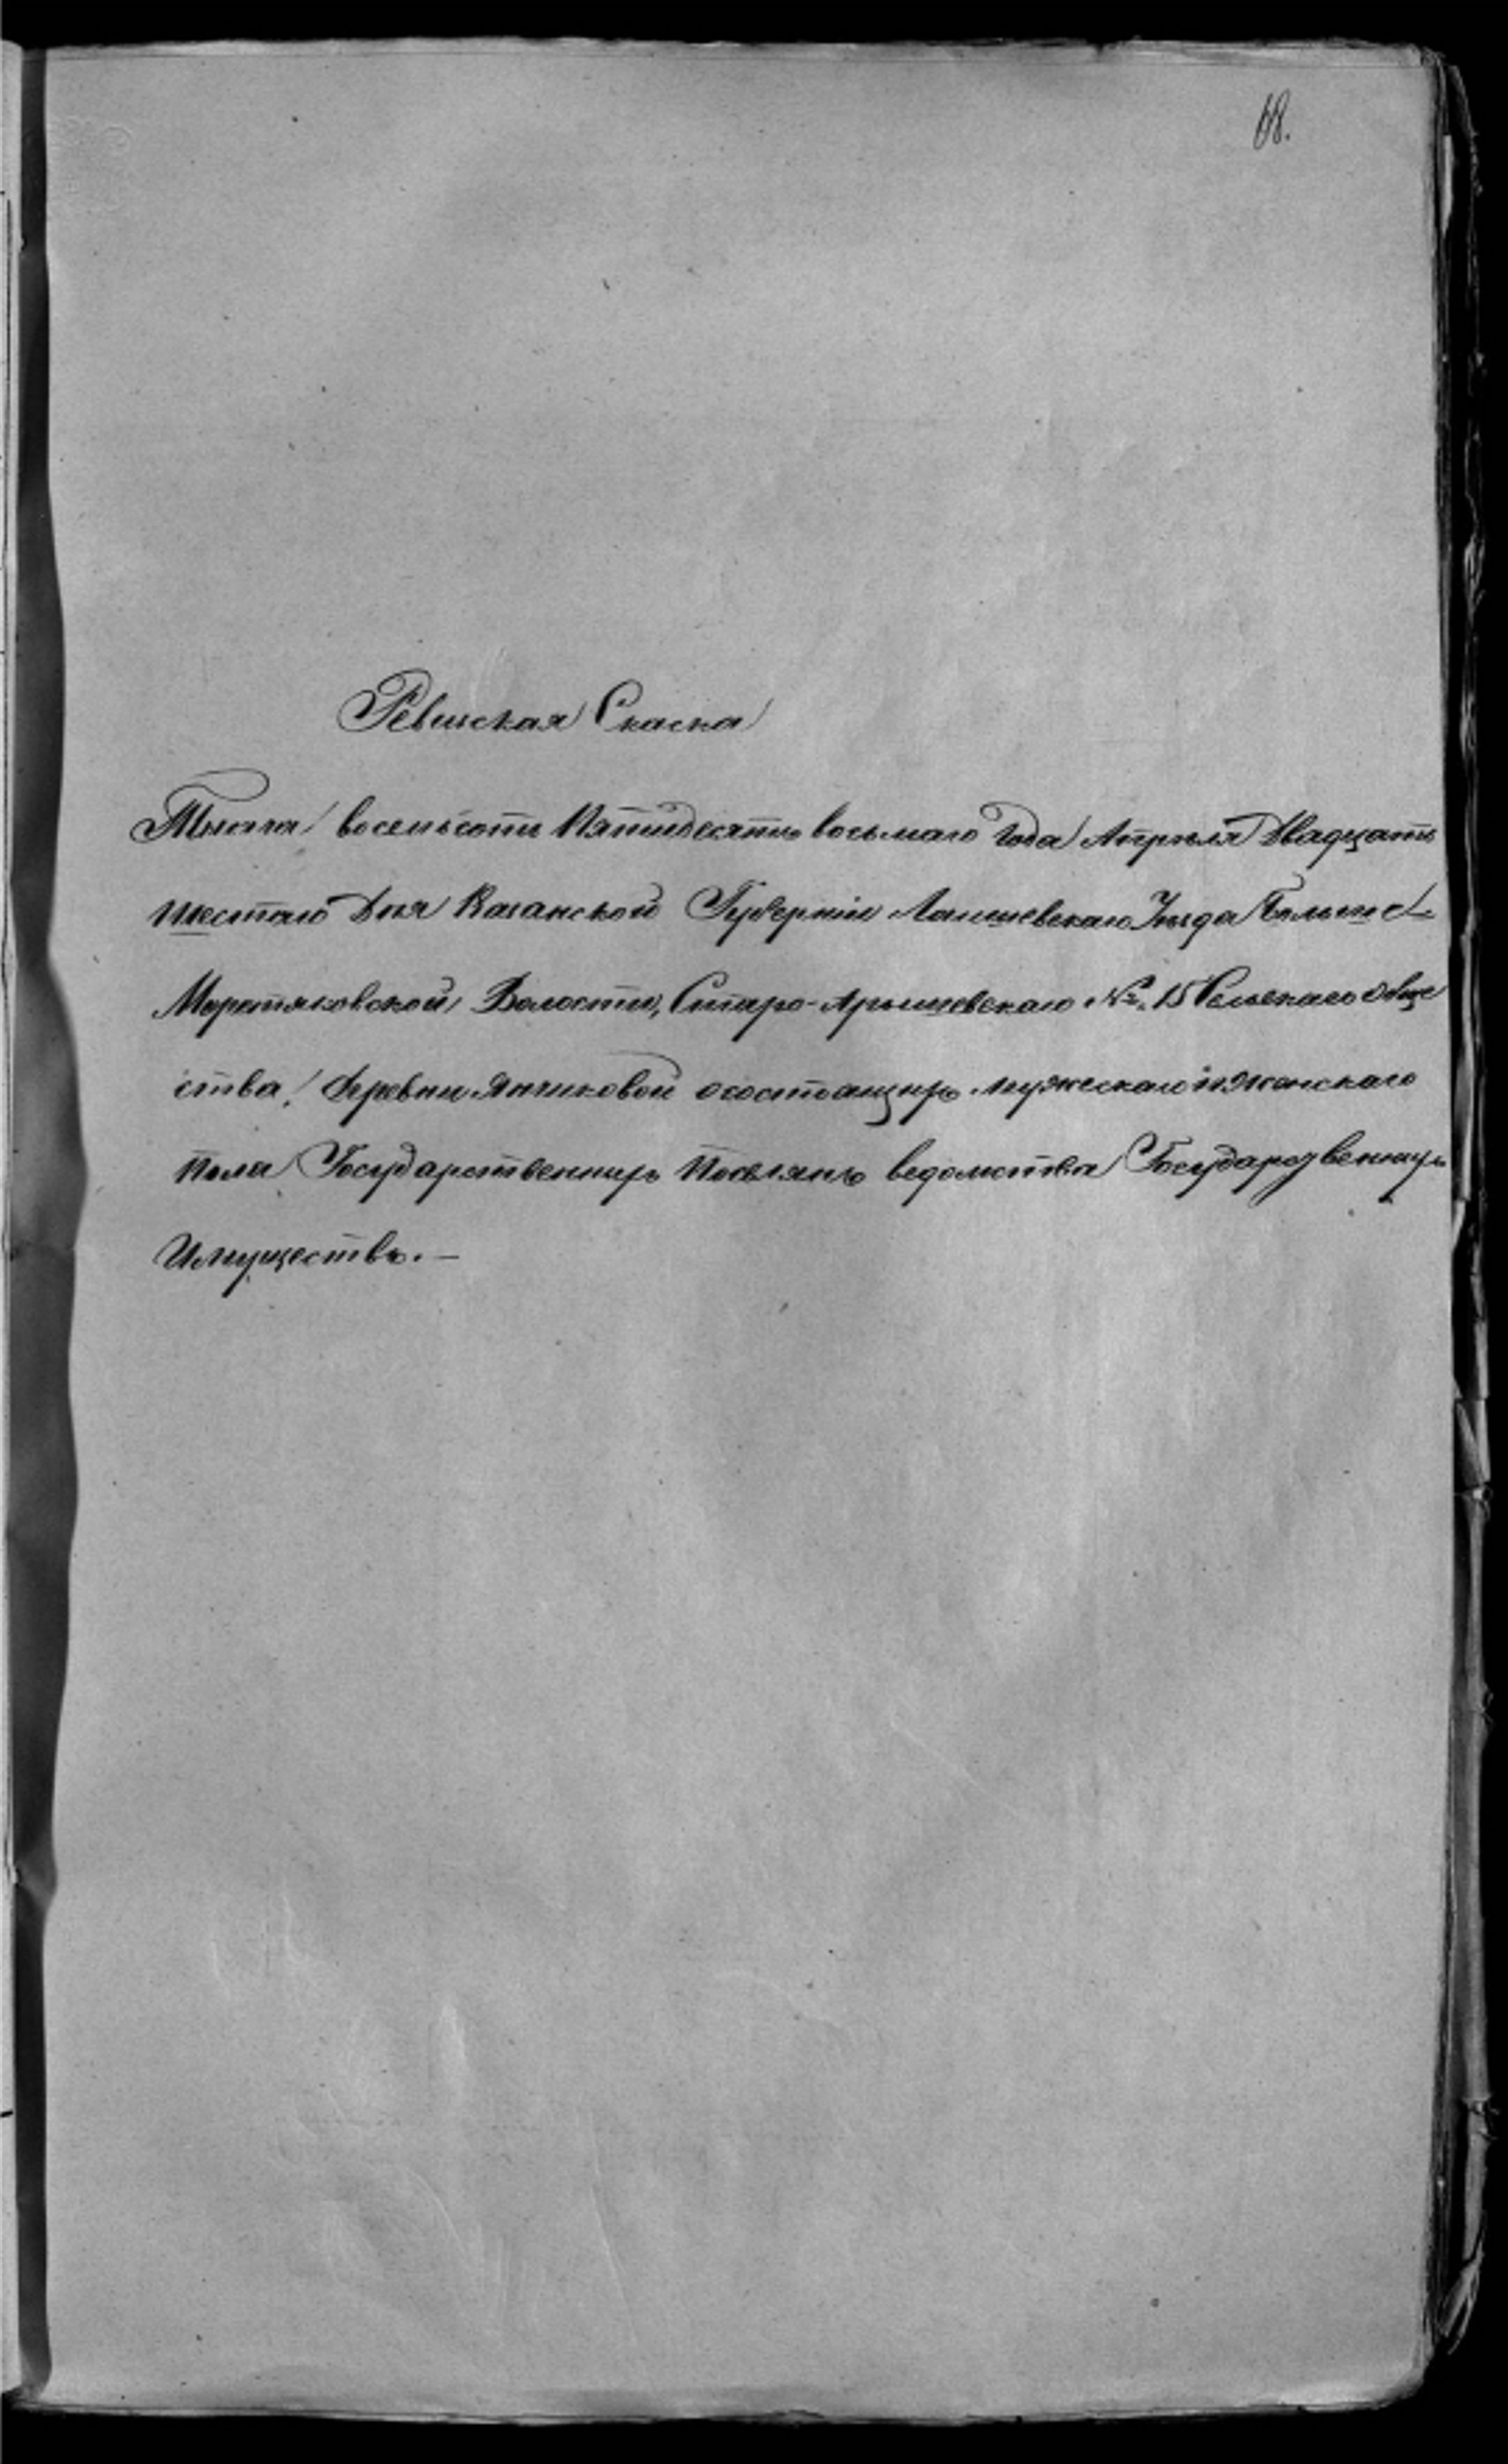 68.
Ревиская Скаска
Тысяча восемьсотъ Пятидесятъ восьмаго Года Апрѣля Двадцать
шестаго Дня Казанской Губерніи Лаишевскаго Уѣзда Больше-
Меретяковской Волости, Старо-Арышевскаго №. 15 Сельскаго обще
ства, Деревни Янчиковой осостоящихъ мужескаго и женскаго
пола Государственныхъ Поселянъ ведомства Государственныхъ
Имуществъ. —